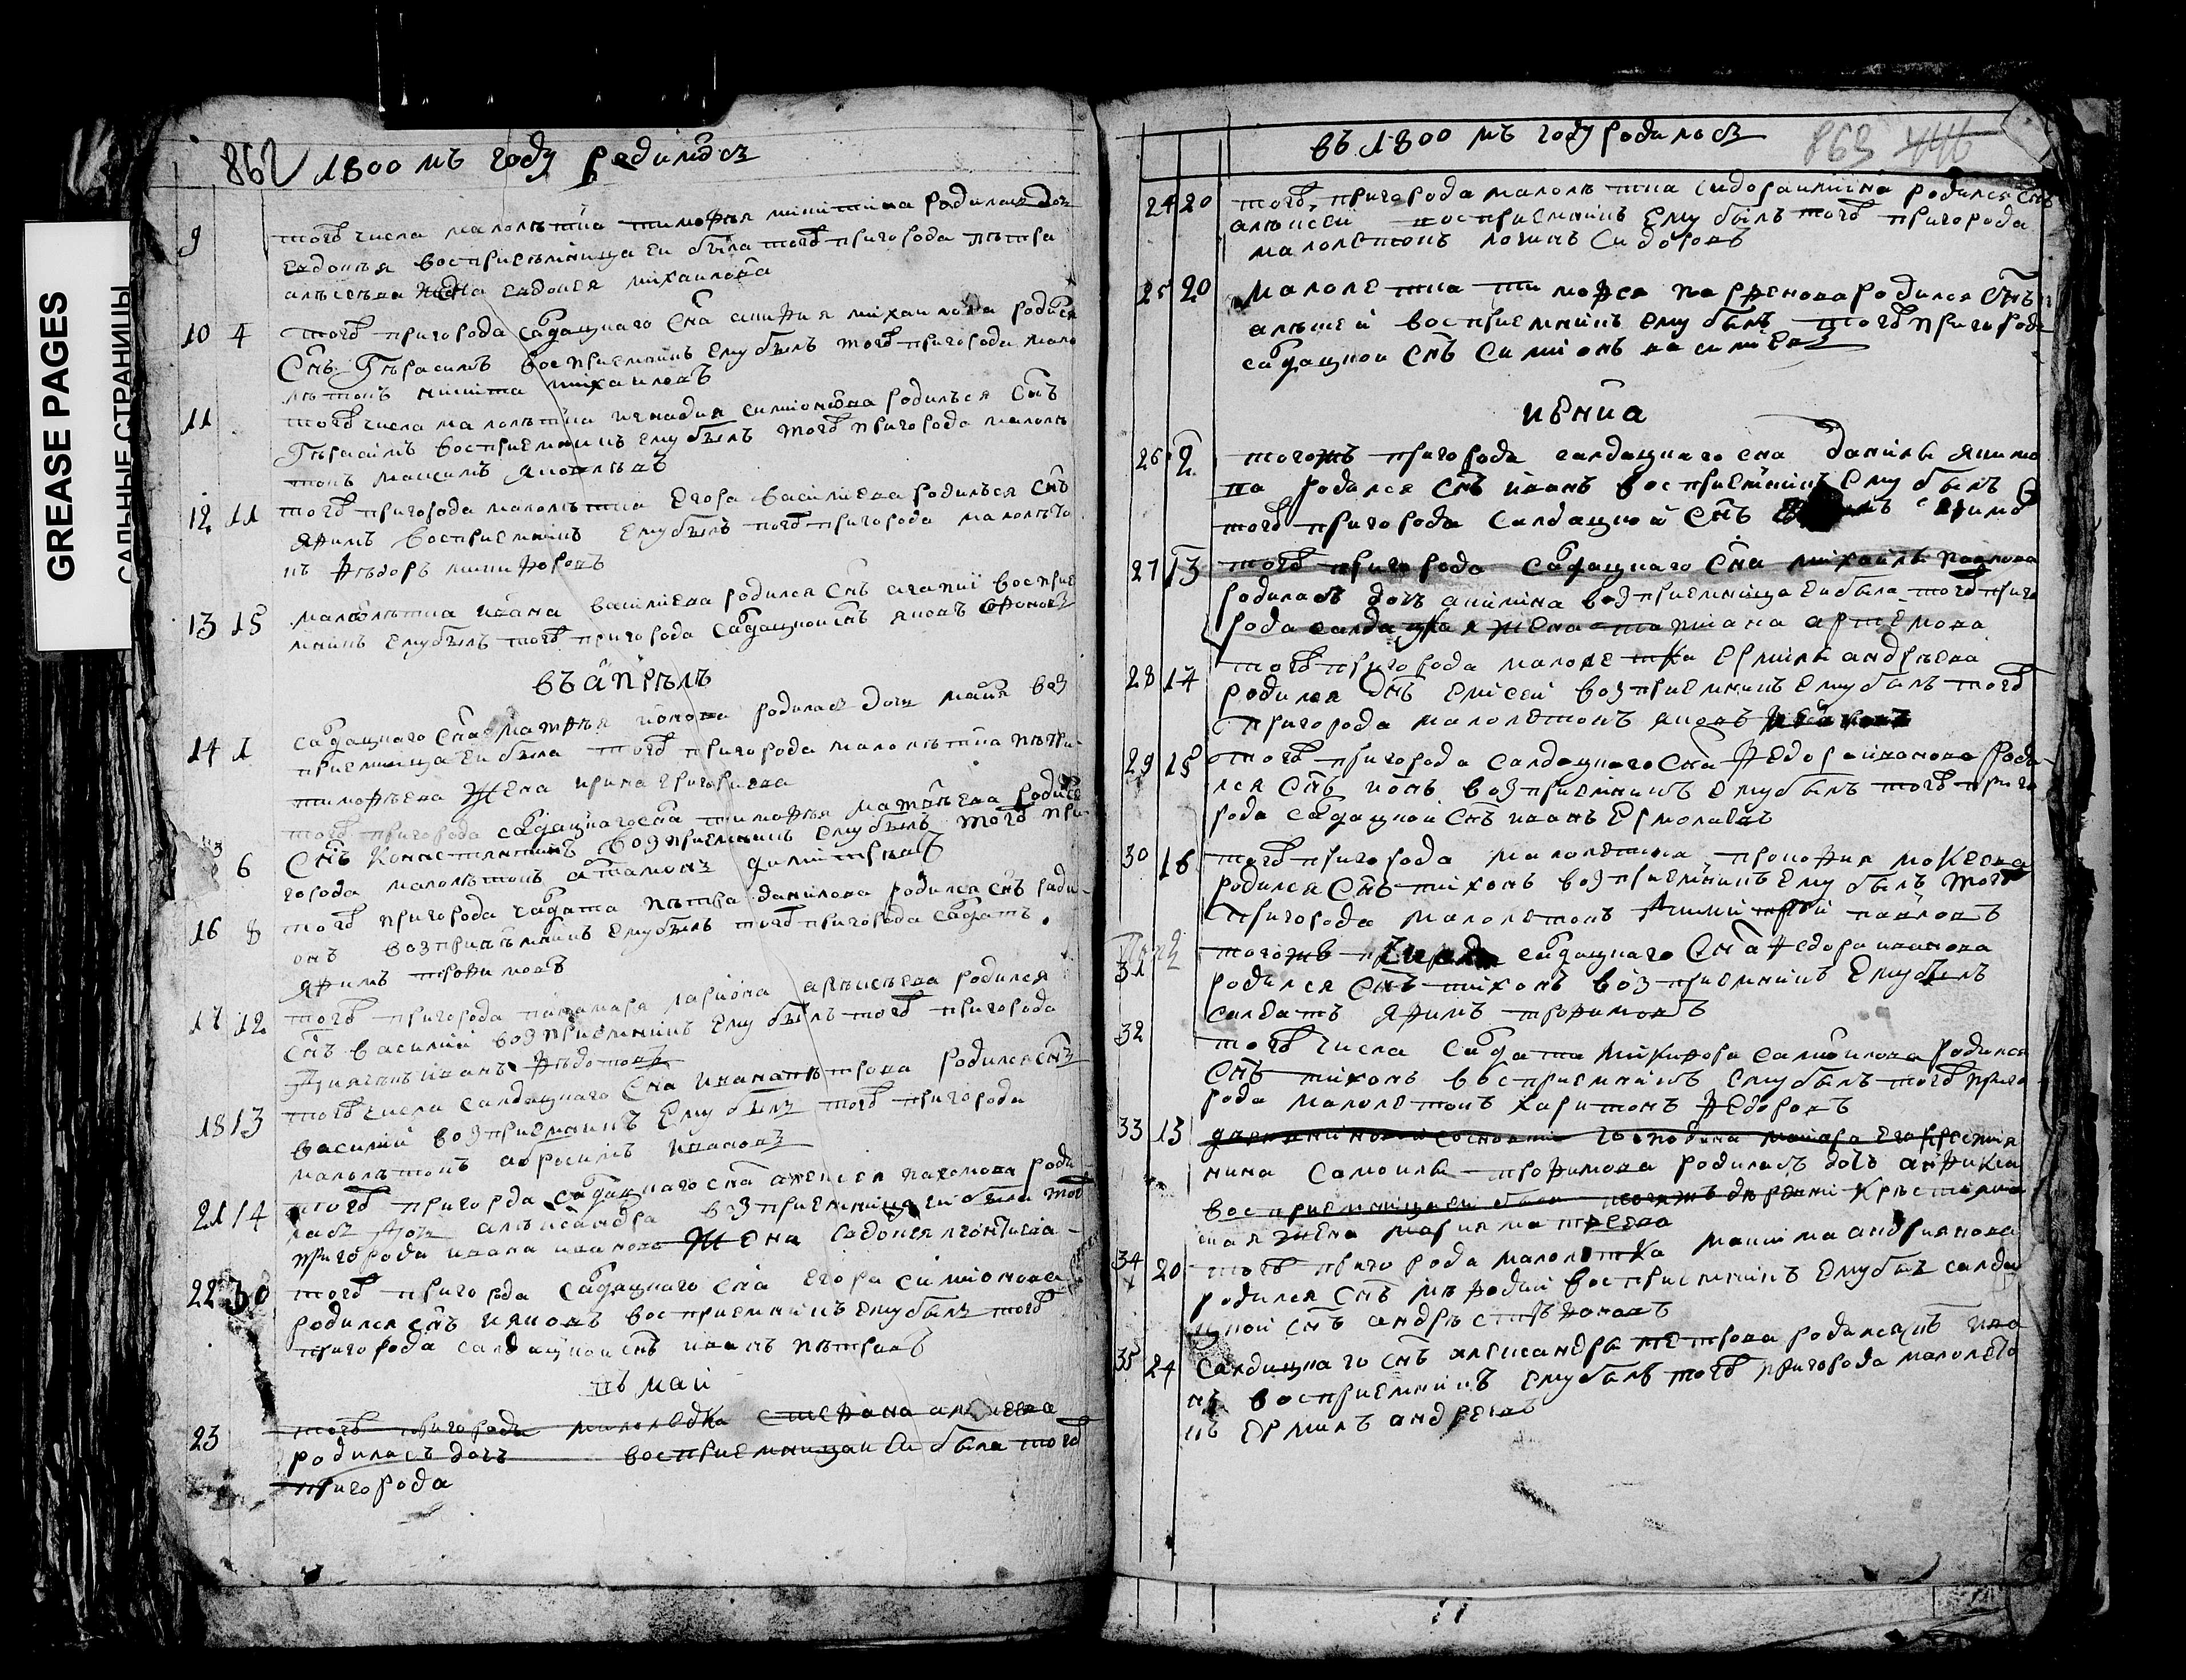 GREASE PAGES
САЛЬНЫЕ СТРАНИЦЫ
862 1800 мъ году родилось
9 тогѡ числа малолѣтка тимофѣя никитина родилася дочь
евдокѣя восприемница еи была тогѡ пригорода пѣтра
алѣсѣва жена евдокея михаилова
10 4 тогѡ пригорода салдацкаго сна михаилова родился
снъ Герасимъ восприемникъ ему былъ тогѡ пригорода мало
лѣтокъ никита михаиловъ
11 тогѡ числа малолѣтка генадия симионова родилъся снъ
Герасимъ восприемникъ ему былъ тогѡ пригорода малолѣ
токъ максимъ яковлѣвъ
12 11 тогѡ пригорода малолѣтка Егора василиева родилъся снъ
яфимъ восприемникъ ему былъ тогѡ пригорода малолѣто
къ фѣдоръ никифоровъ
13 15 малолѣтка ивана василиева родился снъ агапий восприе
мникъ ему былъ тогѡ пригорода садацкой снъ яковъ
въ априль
14 1 садацкаго сна матфѣя ионова родилась дочь воз
приемница еи была тогѡ пригорода малолѣтка пѣтра
тимофѣева жена ирина григориева
тогѡ пригорода садацкаго сна тимофѣя матфѣева родися
6 снъ констянтинъ возприемникъ ему былъ тогѡ при
города малолѣтокъ дмитриевъ
16 8 тогѡ пригорода садата пѣтра данилова родился снъ роди
онъ возприемникъ ему былъ тогѡ пригорода садатъ
яфимъ трофимовъ
17 12 тогѡ пригорода панамаря лариона алѣксѣева родился
снъ василий возприемникъ ему былъ тогѡ пригорода
иванъ фѣдотовъ
18 13 тогѡ числа салдацкаго сна ивана пѣтрова родился снъ
василий возприемникъ ему былъ тогѡ пригорода
малолѣтокъ абросимъ ивановъ
21 14 тогѡ пригорода садацкаго сна алексея пахомова роди
лась дочь алѣксандра возприемница еи была тогѡ
пригорода ивана иванова жена евдокея леонтиева
22 30 тогѡ пригорода садацкаго сна егора симионова
родился снъ ияковъ восприемникъ ему былъ тогѡ
пригорода салдацкои снъ иванъ пѣтровъ
въ маи
23 тогѡ пригорода стефана
родилась дочь восприемницаи еи была тогѡ
пригорода
въ 1800 мъ году родилось 863 446
24 20 тогѡ пригорода малолѣтка сидора никитина родился снъ
алексеи восприемникъ ему былъ тогѡ пригорода
малолетокъ логинъ сидоровъ
25 20 малолетка тимофея парфенова родился снъ
алѣксеи восприемникъ ему былъ тогѡ пригорода
садацкои снъ симионъ василиевъ
июниа
26 2 тогожъ пригорода салдацкаго сна данилы якимо
ва родился снъ иванъ восприемникъ ему былъ
тогѡ пригорода салдацкой снъ
27 13 тогѡ пригорода садацкаго сна михаилы павлова
родилась дочь акилина возприемница еи была тогѡ приго
рода салдацкая жена татиана артемова
28 14 тогѡ пригорода малолетка ермилы андрѣева
родился снъ елисеи возприемникъ ему былъ тогѡ
пригорода малолетокъ яковъ
29 15 тогѡ пригорода салдацкаго сна федора иванова роди
лся снъ ионъ возприемникъ ему былъ тогѡ приго
рода садацкой снъ иванъ ермолаевъ
30 16 тогѡ пригорода малолетка прокофия мокеева
родился снъ тихонъ возприемникъ ему былъ тогѡ
пригорода малолетокъ павловъ
31 тогожъ садацкаго сна федора иванова
родился снъ тихонъ возприемникъ ему былъ
салдатъ яфимъ трофимовъ
32 тогѡ числа садата никифора самоилова родился
снъ тихонъ восприемникъ ему былъ тогѡ приго
рода малолетокъ харитонъ федоровъ
33 13 господина его крестия
нина самоилы трофимова родилась дочь анфиса
восприемницаеи была крѣстиянс
кая жена мария матфеева
34 20 тогѡ пригорода малолетка максима андриянова
родился снъ мѣфодий восприемникъ ему былъ салда
цкой снъ андрѣ
35 24 салдацкаго снъ александра петрова родился снъ ива
нъ восприемникъ ему былъ тогѡ пригорода малолѣто
къ ермилъ андреевъ